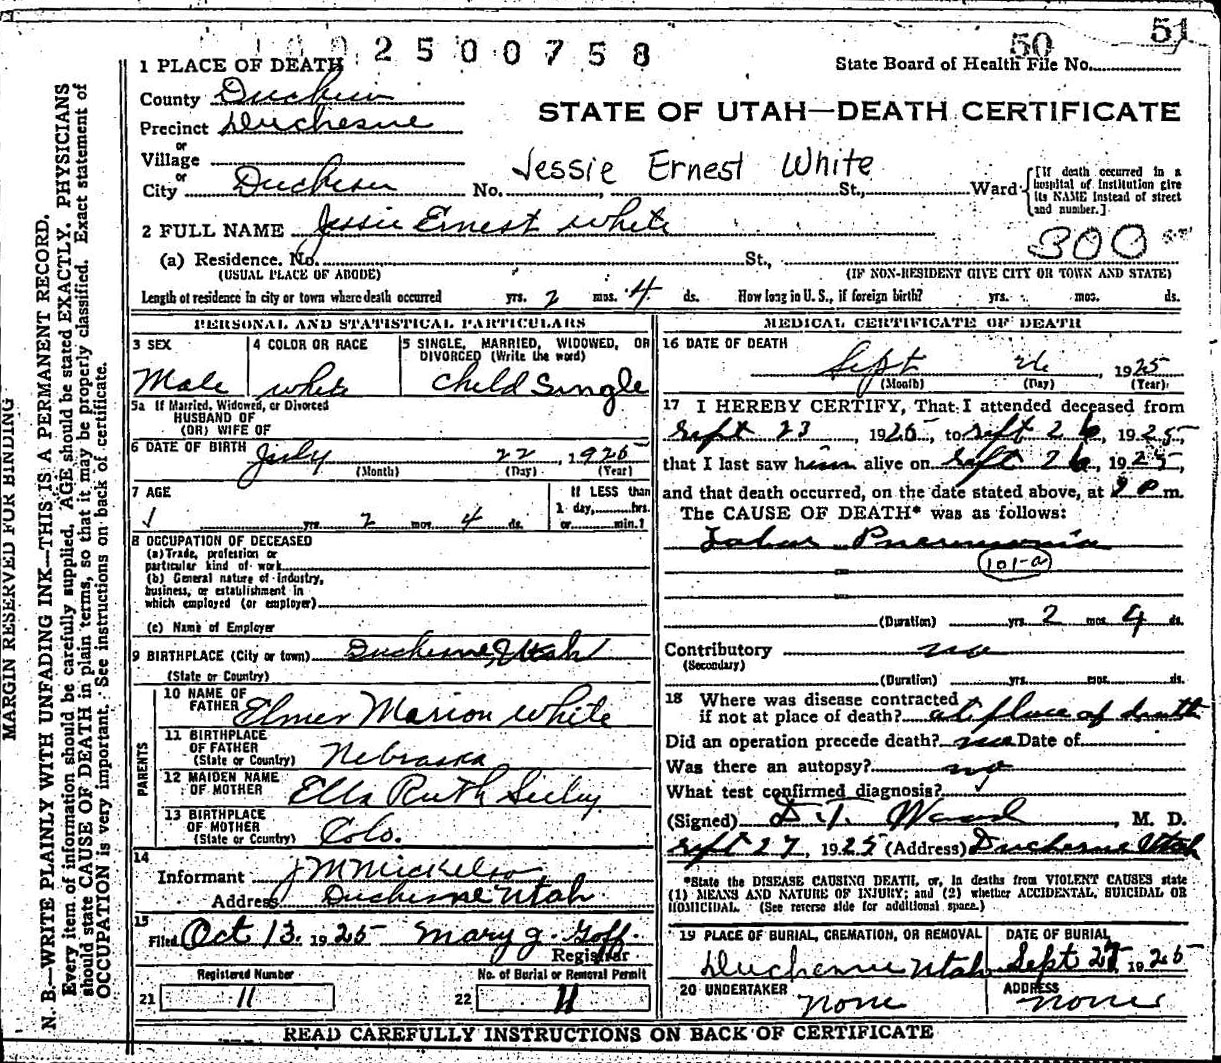 51
50
1002500758
1 PLACE OF DEATH
State Board of Health File No.
County Duchesne
STATE OF UTAH—DEATH CERTIFICATE
Precinct Duchesne
or
Village
or
Jessie Ernest White
City Duchesne No. St., Ward
[If death occurred in a hospital of institution give its NAME instead of street and number.]
2 FULL NAME Jessie Ernest White
300
(a) Residence. No. St.,
(USUAL PLACE OF ABODE) (IF NON-RESIDENT GIVE CITY OR TOWN AND STATE)
Length of residence in city or town where death occurred yrs. 2 mos. 4 ds. How long in U. S., if foreign birth? yrs. mos. ds.
PERSONAL AND STATISTICAL PARTICULARS
3 SEX Male
4 COLOR OR RACE white
5 SINGLE, MARRIED, WIDOWED, OR DIVORCED (Write the word)
Child Single
5a If Married, Widowed, or Divorced
HUSBAND OF
(OR) WIFE OF
6 DATE OF BIRTH July 22, 1925
(Month) (Day) (Year)
7 AGE
yrs. 2 mos. 4 ds.
If LESS than
1 day, hrs.
or min.?
8 OCCUPATION OF DECEASED
(a) Trade, profession or
particular kind of work
(b) General nature of industry,
business, or establishment in
which employed (or employer)
(c) Name of Employer
9 BIRTHPLACE (City or town) Duchesne, Utah
(State or Country)
PARENTS
10 NAME OF FATHER Elmer Marion White
11 BIRTHPLACE OF FATHER (State or Country) Nebraska
12 MAIDEN NAME OF MOTHER Ella Ruth Seeley
13 BIRTHPLACE OF MOTHER (State or Country) Colo.
14
Informant J M Mickelson
Address Duchesne Utah
15
Filed Oct 13. 1925 Mary G. Goff.
Registrar
Registered Number No. of Burial or Removal Permit
21 11 22 11
MEDICAL CERTIFICATE OF DEATH
16 DATE OF DEATH
Sept 26, 1925
(Month) (Day) (Year)
17 I HEREBY CERTIFY, That I attended deceased from
Sept 23, 1925, to Sept 26, 1925,
that I last saw him alive on Sept 26, 1925,
and that death occurred, on the date stated above, at m.
The CAUSE OF DEATH* was as follows:
Lobar Pneumonia
101-a
(Duration) yrs. 2 mos. 4 ds.
Contributory no
(Secondary)
(Duration) yrs. mos. ds.
18 Where was disease contracted
if not at place of death? at place of death
Did an operation precede death? no Date of
Was there an autopsy? no
What test confirmed diagnosis?
(Signed) D. T. Wood, M. D.
Sept 27, 1925 (Address) Duchesne Utah
*State the DISEASE CAUSING DEATH, or, in deaths from VIOLENT CAUSES state
(1) MEANS AND NATURE OF INJURY; and (2) whether ACCIDENTAL, SUICIDAL OR
HOMICIDAL. (See reverse side for additional space.)
19 PLACE OF BURIAL, CREMATION, OR REMOVAL
Duchesne Utah
DATE OF BURIAL
Sept 27, 1925
20 UNDERTAKER none
ADDRESS none
READ CAREFULLY INSTRUCTIONS ON BACK OF CERTIFICATE
MARGIN RESERVED FOR BINDING
N. B.—WRITE PLAINLY WITH UNFADING INK—THIS IS A PERMANENT RECORD.
Every item of information should be carefully supplied. AGE should be stated EXACTLY. PHYSICIANS
should state CAUSE OF DEATH in plain terms, so that it may be properly classified. Exact statement of
OCCUPATION is very important. See instructions on back of certificate.